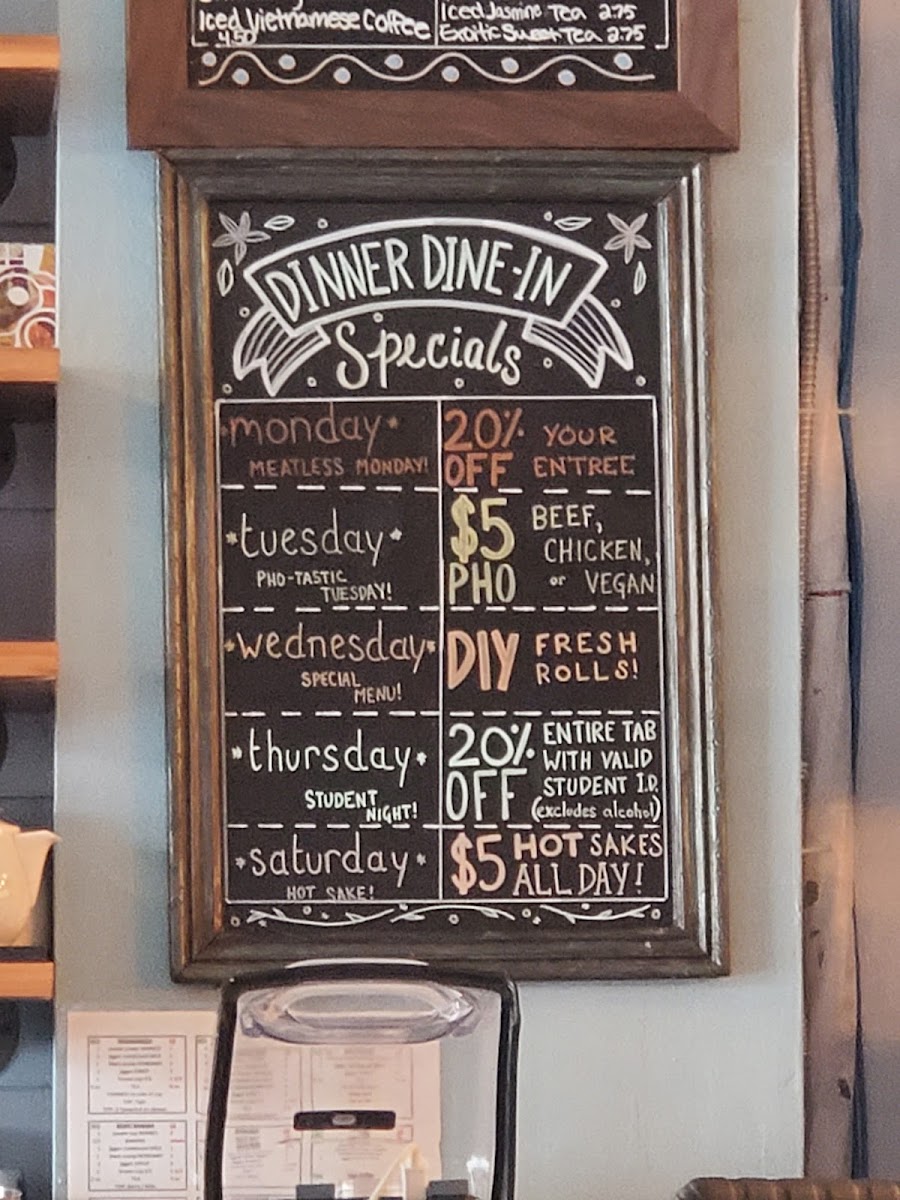 Iced Vietnamese Coffee
4.50
Iced Jasmine Tea 2.75
Exotic Sweet Tea 2.75
DINNER DINE-IN
Specials
monday
MEATLESS MONDAY!
20% OFF YOUR ENTREE
tuesday
PHO-TASTIC
TUESDAY!
$5 PHO
BEEF,
CHICKEN,
or VEGAN
wednesday
SPECIAL
MENU!
DIY FRESH
ROLLS!
thursday
STUDENT
NIGHT!
20% OFF
ENTIRE TAB
WITH VALID
STUDENT I.D.
(excludes alcohol)
saturday
HOT SAKE!
$5 HOT SAKES
ALL DAY!